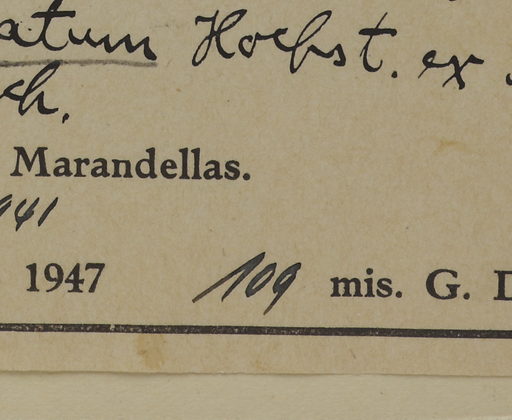 atum Hochst. ex
ch,
Marandellas.
1941
1947 109 mis. G. D